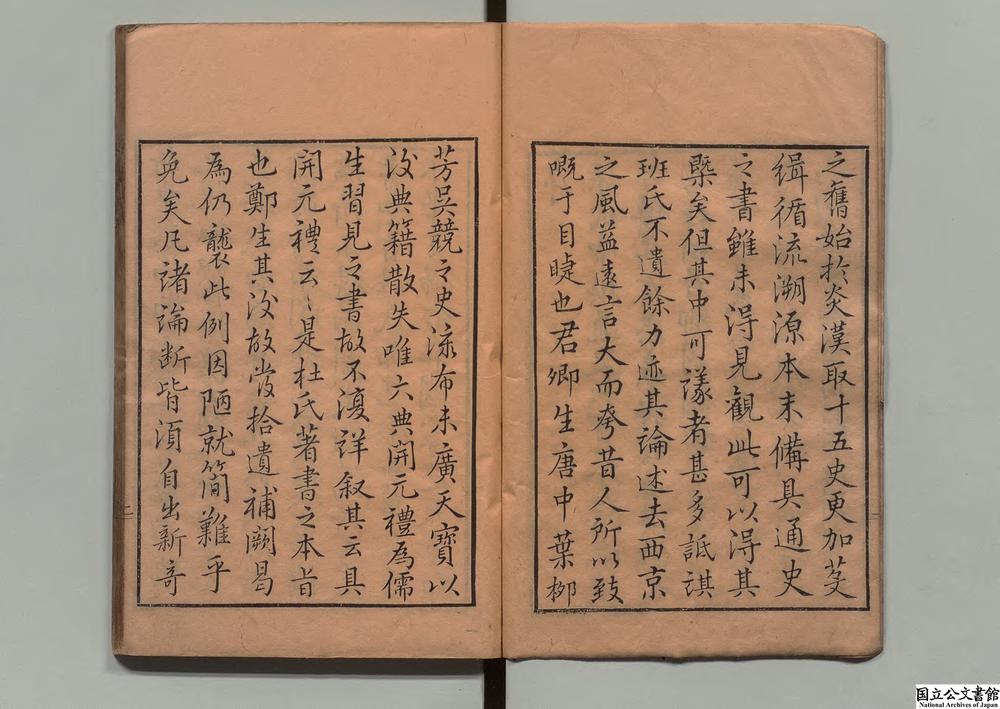 之舊始於炎漢取十五史更加芟
緝循流溯源本末備具通史
之書雖未得見觀此可以得其
槩矣但其中可議者甚多詆諆
班氏不遺餘力迹其論述去西京
之風益遠言大而夸昔人所以致
嘅于目睫也君卿生唐中葉柳
芳吳兢之史流布未廣天寶以
後典籍散失唯六典開元禮為儒
生習見之書故不復詳叙其云具
開元禮云〻是杜氏著書之本旨
也鄭生其後故當拾遺補闕曷
為仍襲此例因陋就簡難乎
免矣凡諸論斷皆須自出新奇
二
国立公文書館
National Archives of Japan